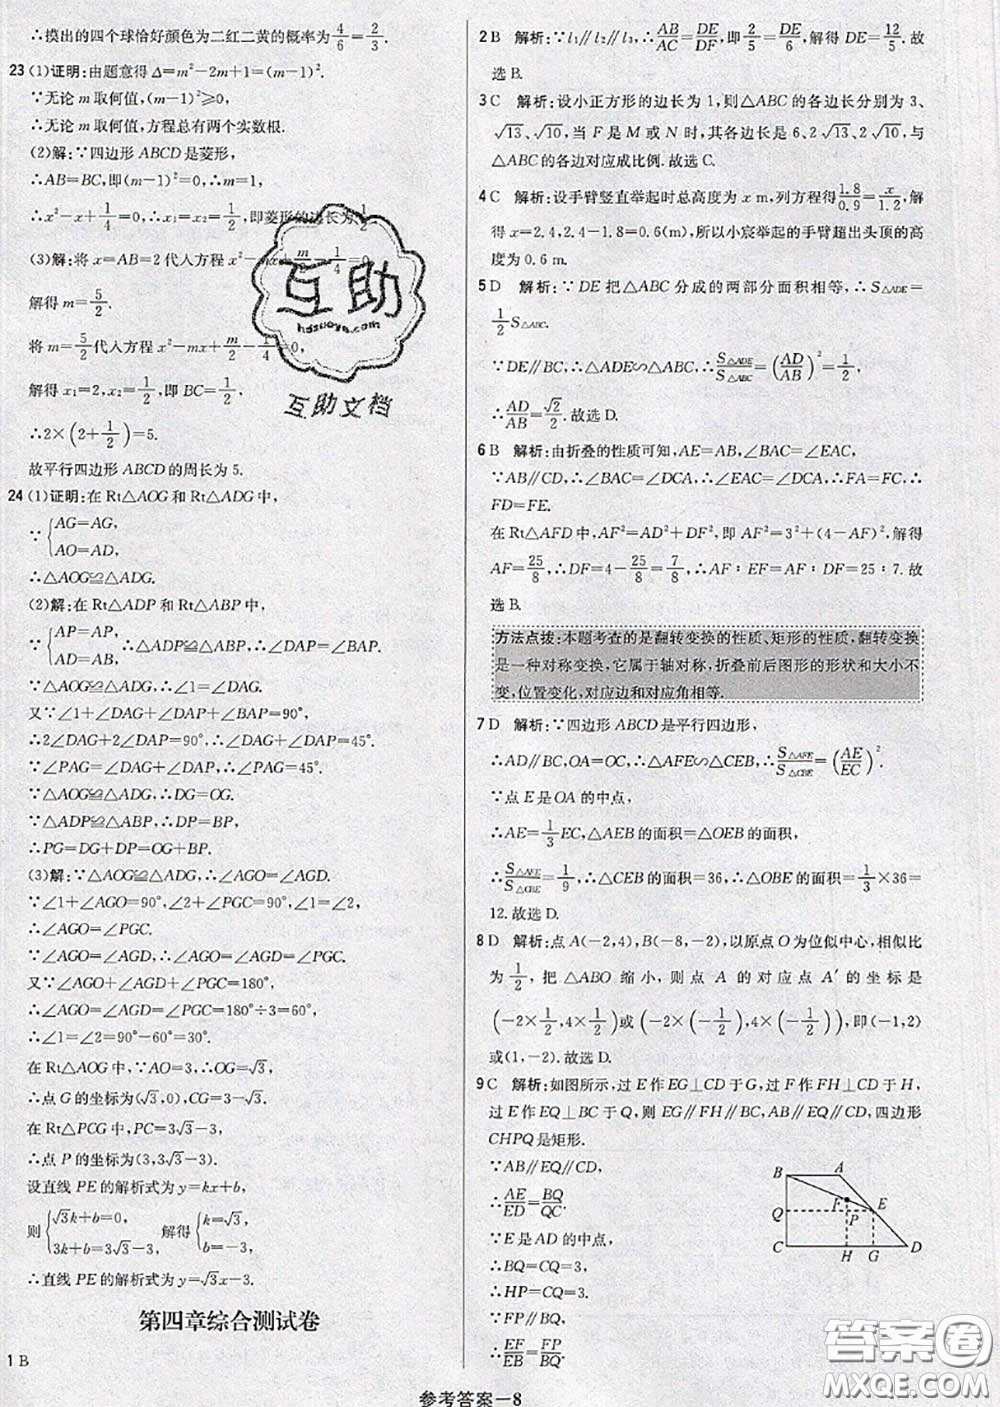 ∴摸出的四个球恰好颜色为二红二黄的概率为4/6=2/3.
23 (1)证明:由题意得Δ=m²−2m+1=(m−1)².
∵无论m取何值,(m−1)²≥0,
∴无论m取何值,方程总有两个实数根.
(2)解:∵四边形ABCD是菱形,
∴AB=BC,即(m−1)²=0,
∴x²−x+1/4=0,∴x₁=x₂=1/2,即菱形的边长为1/2.
(3)解:将x=AB=2代入方程x²−mx+m/2−1/4=0,
解得m=5/2.
将m=5/2代入方程x²−mx+m/2−1/4=0,
解得x₁=2,x₂=1/2,即BC=1/2.
∴2×(2+1/2)=5.
故平行四边形ABCD的周长为5.
24 (1)证明:在Rt△AOG和Rt△ADG中,
∵{AG=AG,
AO=AD,
∴△AOG≌△ADG.
(2)解:在Rt△ADP和Rt△ABP中,
∵{AP=AP,
AD=AB,
∴△ADP≌△ABP,
∵△AOG≌△ADG,∴∠1=∠DAG.
又∵∠1+∠DAG+∠DAP+∠BAP=90°,
∴2∠DAG+2∠DAP=90°,∴∠DAG+∠DAP=45°.
∵∠PAG=∠DAG+∠DAP,∴∠PAG=45°.
∵△AOG≌△ADG,∴DG=OG.
∵△ADP≌△ABP,∴DP=BP,
∴PG=DG+DP=OG+BP.
(3)解:∵△AOG≌△ADG,∴∠AGO=∠AGD.
∵∠1+∠AGO=90°,∠2+∠PGC=90°,∠1=∠2,
∴∠AGO=∠PGC.
又∵∠AGO+∠AGD+∠PGC=180°,
∴∠AGO=∠AGD=∠PGC=180°÷3=60°,
∴∠1=∠2=90°−60°=30°.
在Rt△AOG中,∵AO=3,∴OG=√3,
∴点G的坐标为(√3,0),CG=3−√3.
在Rt△PCG中,PC=3√3−3,
∴点P的坐标为(3,3√3−3).
设直线PE的解析式为y=kx+b,
则{√3k+b=0,
3k+b=3√3−3, 解得{k=√3,
b=−3.
∴直线PE的解析式为y=√3x−3.
第四章综合测试卷
1 B
2 B 解析:∵l₁∥l₂∥l₃,∴AB/AC=DE/DF,即2/5=DE/6,解得DE=12/5.故
选B.
3 C 解析:设小正方形的边长为1,则△ABC的各边长分别为3、
√13、√10,当F是M或N时,其各边长是6、2√13、2√10,与
△ABC的各边对应成比例.故选C.
4 C 解析:设手臂竖直举起时总高度为x m,列方程得1.8/0.9=x/1.2,解
得x=2.4,2.4−1.8=0.6(m),所以小宸举起的手臂超出头顶的高
度为0.6 m.
5 D 解析:∵DE把△ABC分成的两部分面积相等,∴S△ADE=
1/2 S△ABC.
∵DE∥BC,∴△ADE∽△ABC,∴S△ADE/S△ABC=(AD/AB)²=1/2,
∴AD/AB=√2/2.故选D.
6 B 解析:由折叠的性质可知,AE=AB,∠BAC=∠EAC,
∵AB∥CD,∴∠BAC=∠DCA,∴∠EAC=∠DCA,∴FA=FC,
∴FD=FE.
在Rt△AFD中,AF²=AD²+DF²,即AF²=3²+(4−AF)²,解得
AF=25/8,∴DF=4−25/8=7/8,∴AF∶EF=AF∶DF=25∶7.故
选B.
方法点拨:本题考查的是翻转变换的性质、矩形的性质,翻转变换
是一种对称变换,它属于轴对称,折叠前后图形的形状和大小不
变,位置变化,对应边和对应角相等.
7 D 解析:∵四边形ABCD是平行四边形,
∴AD∥BC,OA=OC,∴△AFE∽△CEB,∴S△AFE/S△CBE=(AE/EC)².
∵点E是OA的中点,
∴AE=1/3 EC,△AEB的面积=△OEB的面积,
∴S△AFE/S△CBE=1/9,∴△CEB的面积=36,∴△OBE的面积=1/3×36=
12.故选D.
8 D 解析:点A(−2,4),B(−8,−2),以原点O为位似中心,相似比
为1/2,把△ABO缩小,则点A的对应点A′的坐标是
(−2×1/2,4×1/2)或(−2×(−1/2),4×(−1/2)),即(−1,2)
或(1,−2).故选D.
9 C 解析:如图所示,过E作EG⊥CD于G,过F作FH⊥CD于H,
过E作EQ⊥BC于Q,则EG∥FH∥BC,AB∥EQ∥CD,四边形
CHPQ是矩形.
∵AB∥EQ∥CD,
∴AE/ED=BQ/QC.
∵E是AD的中点,
∴BQ=CQ=3,
∴HP=CQ=3.
∵FP∥BQ,
∴EF/EB=FP/BQ.
B A
F
E
Q
P
C H G D
互助
hdzuoye.com
互助文档
答案圈
MXQE.COM
参考答案—8